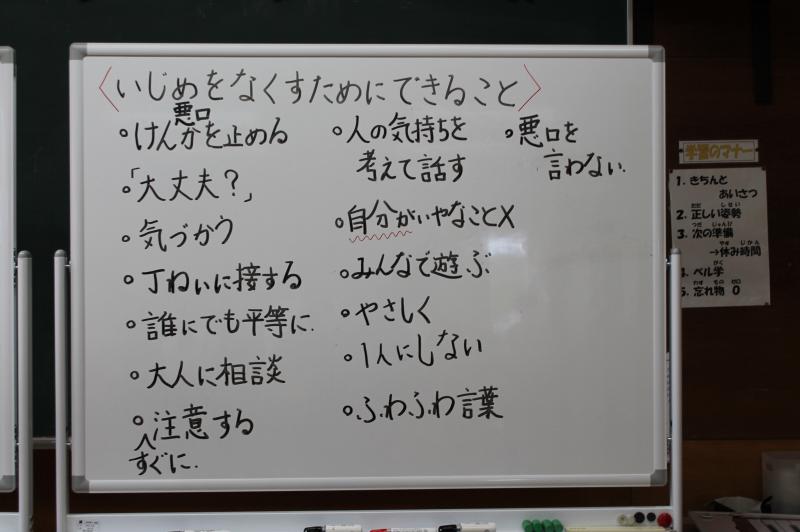 〈いじめをなくすためにできること〉
悪口
けんかを止める
「大丈夫？」
気づかう
丁ねいに接する
誰にでも平等に.
大人に相談
注意する
すぐに.
人の気持ちを
考えて話す
自分がいやなこと×
みんなで遊ぶ
やさしく
1人にしない
ふわふわ言葉
悪口を
言わない.
学習のマナー
1. きちんと
あいさつ
2. 正しい姿勢
3. 次の準備
→休み時間
4. ベル学
5. 忘れ物 0